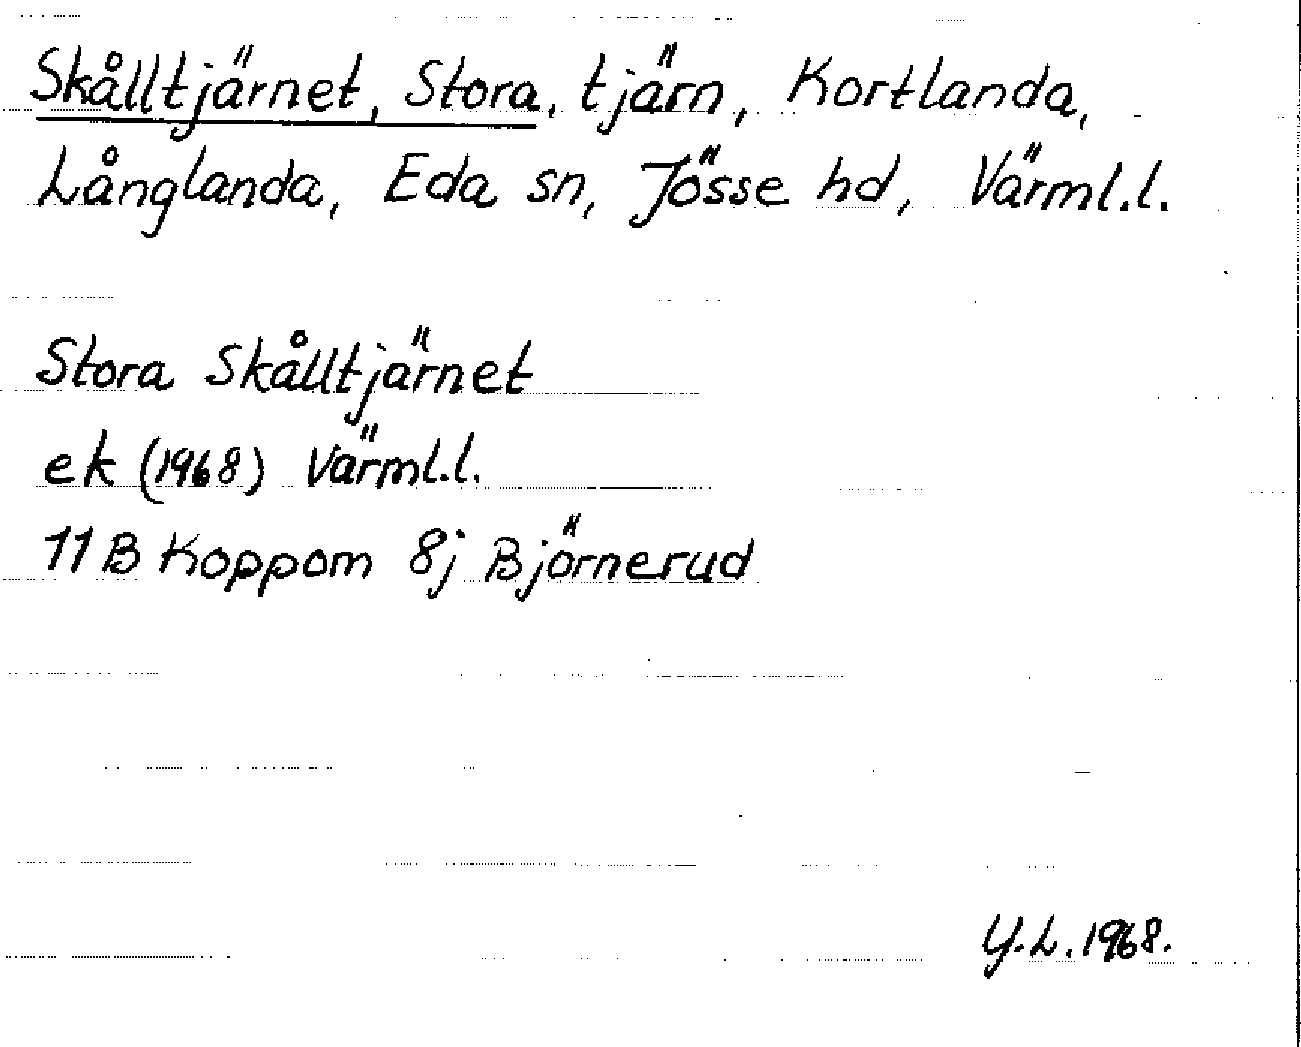 Skålltjärnet, Stora, tjärn, Kortlanda,
Långlanda, Eda sn, Jösse hd, Värml.l.
Stora Skålltjärnet
ek (1968) Värml.l.
11 B Koppom 8j Björnerud
Y.L. 1968.